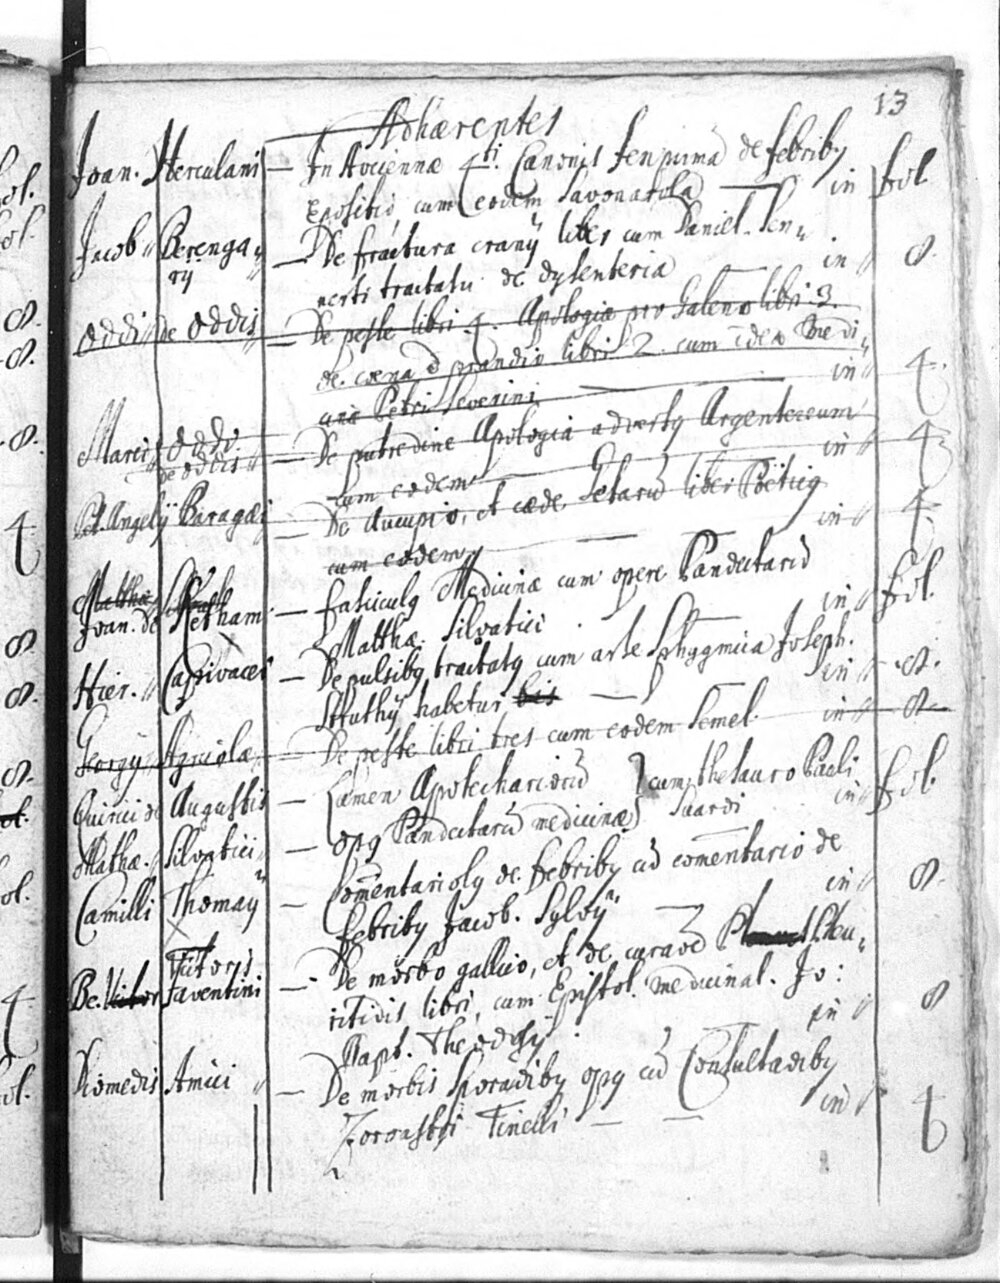 13
Adhærentes
Joan. Herculani — In Avicennæ 4ti. Canonis fen primã de febriby
Expositio, cum eodem Savonarola — in fol
Jacob〃 Berenga〃 — De fractura cranÿ liber cum Daniel. Sen〃
rij
nerti tractatu de dysenteria in〃 8.
Oddi〃 de Oddis〃 — De peste libri 4. Apologiæ pro Galeno libri 3
de cœna & prandio libri 2. cum idea Medi〃
cinæ Petri Severini in〃 4.
Marci〃 Oddo
de oddis〃 — De putredine Apologia adversy Argentereum
cum eodem in〃 4
Pet. Angelÿ Baragæi — De Aucupio, et cæde fetarũ liber Pöeticy
cum eodem in〃 4
Matthæ
Joan. de Ketham — Fasciculy Medicinæ cum opere Pandectarũ
Matthæ. Silvatici in〃 fol.
Hier.〃 Capivacei — De pulsiby tractaty cum arte Sphygmica Joseph.
Struthÿ habetur bis — in〃 8.
Georgÿ Agricolæ — De peste libri tres cum eodem semel in〃 8.
Quirici de Augustis — Lumen Apothecariorũ } cum thesauro Pauli
Suardi in〃 fol.
Mathæ.〃 Silvatici〃 — Opy Pandectarũ medicinæ
Camilli Thomaÿ — Commentarioly de Febriby cũ commentario de
febriby Jacob. Sylvÿ — in〃 8.
Be. Victoris
Faventini — De morbo gallico, et de curand. Pleu〃
ritidis libri, cum Epistol. medicinal. Jo:
Bapt. Theodosÿ in〃 8
Diomedis Amici〃 — De morbis sporadiby opy cũ Consultadiby
Zoroastri Tinelli — — in〃 4